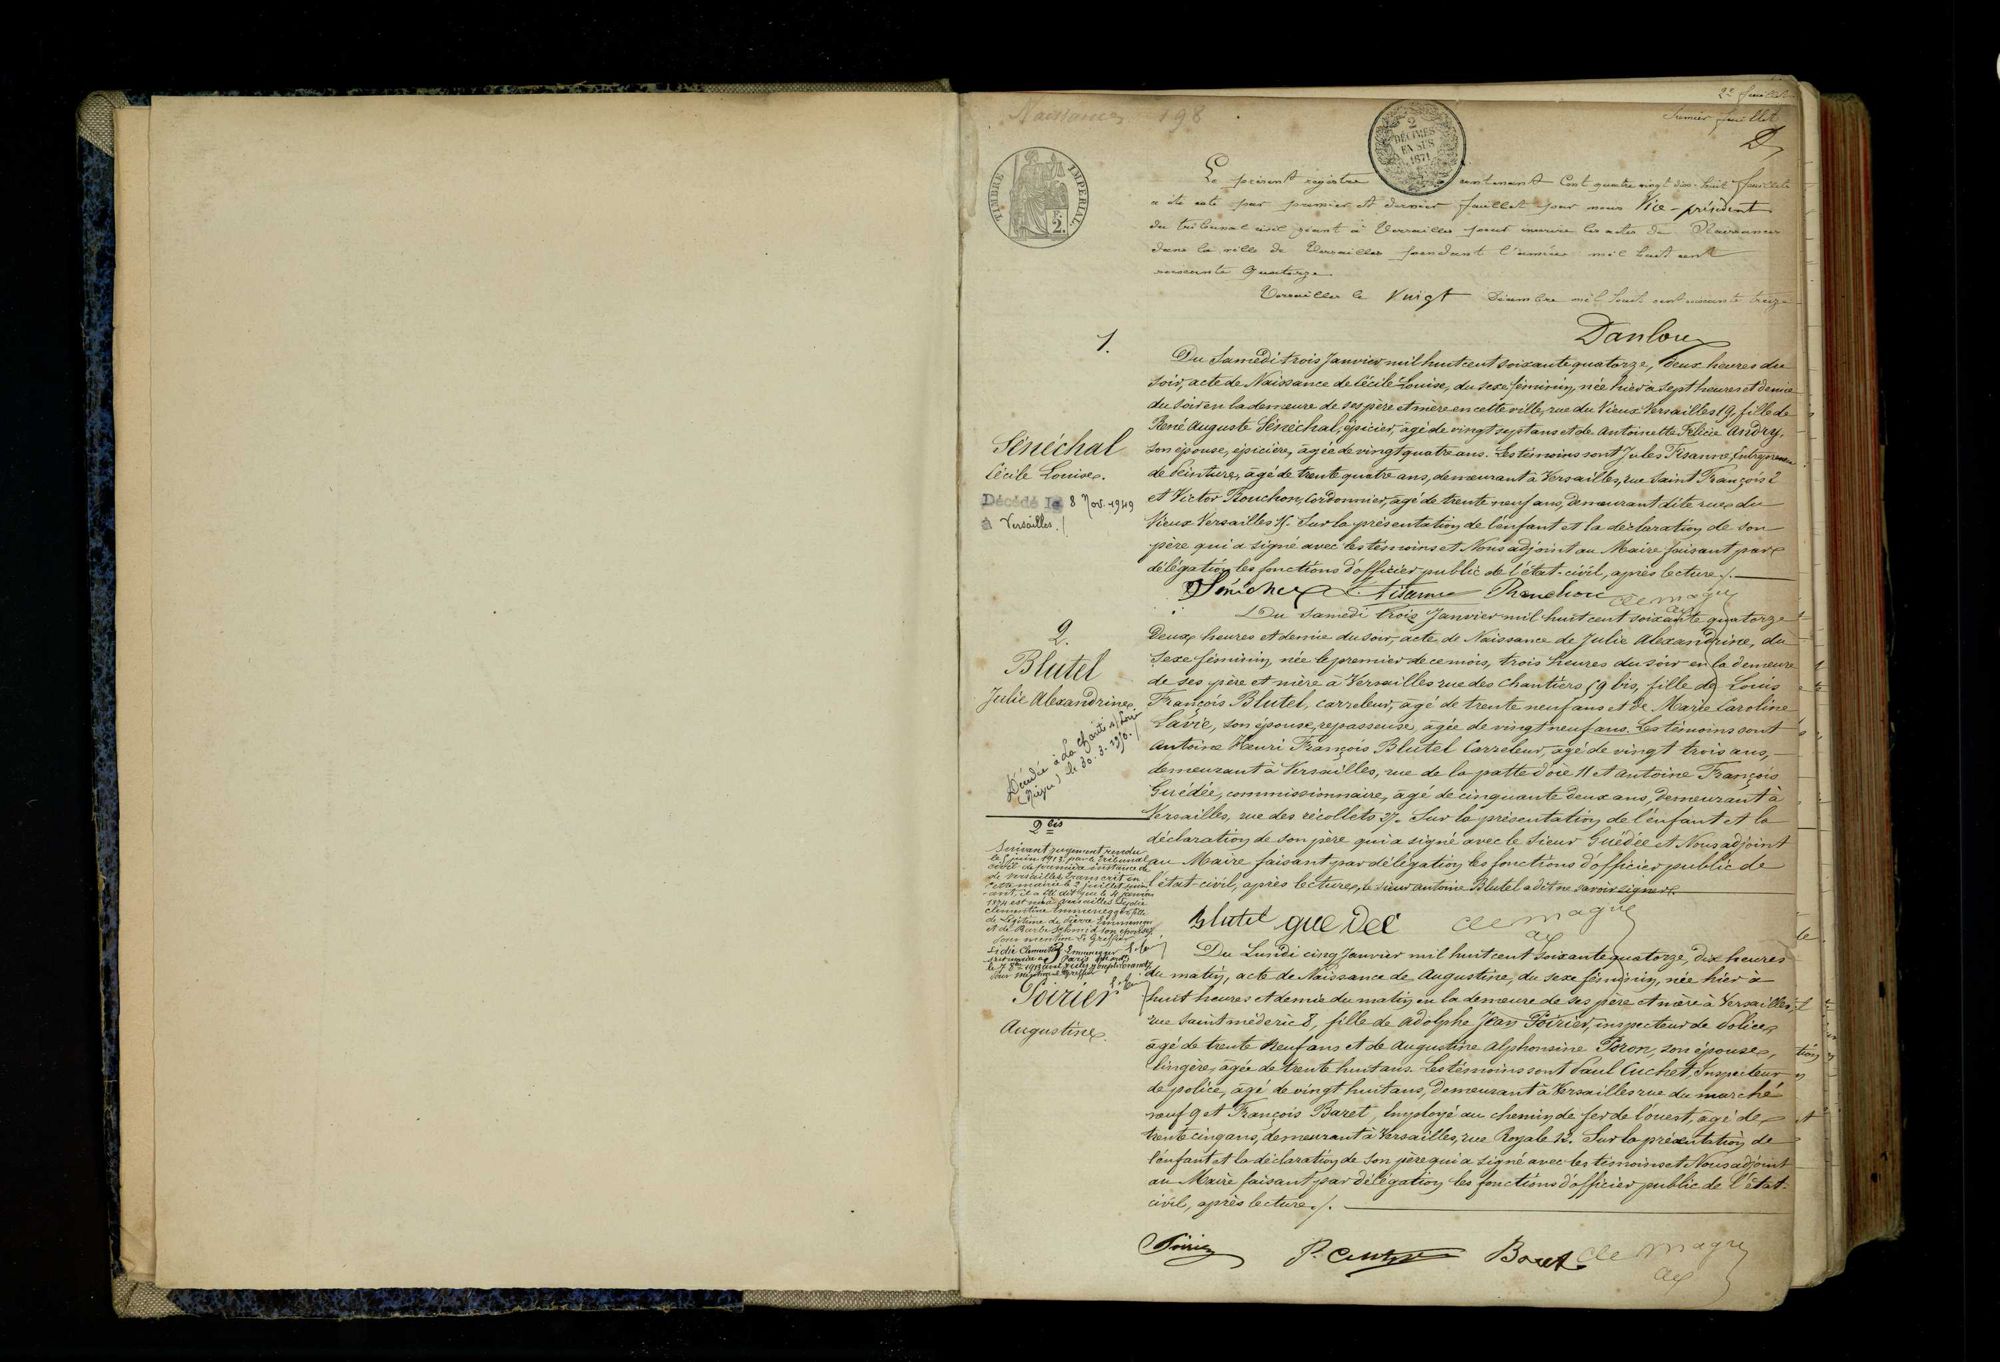 Naissances 198
2e feuillet
Premier feuillet
D
TIMBRE IMPERIAL
F.
2.
2
DÉCIMES
EN SUS
1871
Le présent registre contenant Cent quatre vingt dix-huit feuillets
a été coté par premier et dernier feuillet par nous Vice-président
du tribunal civil séant à Versailles pour inscrire les actes de Naissances
dans la ville de Versailles pendant l'année mil huit cent
soixante Quatorze
Versailles le Vingt Décembre mil huit cent soixante treize
Danloux
1.
Sénéchal
Cécile Louise.
Décédé le 8 Nov. 1949
à Versailles./
Du Samedi trois Janvier mil huit cent soixante quatorze, deux heures du
soir, acte de Naissance de Cécile Louise, du sexe féminin, née hier à sept heures et demie
du soir en la demeure de ses père et mère en cette ville, rue du Vieux Versailles 19, fille de
René Auguste Sénéchal, épicier, âgé de vingt sept ans et de Antoinette Félicie Andry,
son épouse, épicière, âgée de vingt quatre ans. Les témoins sont Jules Tisanne, Entrepreneur
de Peinture, âgé de trente quatre ans, demeurant à Versailles, rue Saint François 2
et Victor Bouchon, Cordonnier, âgé de trente neuf ans, demeurant dite rue du
Vieux Versailles. Sur la présentation de l'enfant et la déclaration de son
père qui a signé avec les témoins et Nous adjoint au Maire faisant par
délégation les fonctions d'officier public de l'état-civil, après lecture./.
2.
Blutel
Julie Alexandrine.
Décédée à La Charité s/ Loire
(Nièvre) le 30.3.1950./
Du Samedi trois Janvier mil huit cent soixante quatorze
Deux heures et demie du soir, acte de Naissance de Julie Alexandrine, du
Sexe féminin, née le premier de ce mois, trois heures du soir en la demeure
de ses père et mère à Versailles rue des Chantiers 59 bis, fille de Louis
François Blutel, carreleur, âgé de trente neuf ans et de Marie Caroline
Lavie, son épouse, repasseuse, âgée de vingt neuf ans. Les témoins sont
Antoine Henri François Blutel Carreleur, âgé de vingt trois ans,
demeurant à Versailles, rue de la patte d'oie 11 et Antoine François
Guédée, commissionnaire, âgé de cinquante deux ans, demeurant à
Versailles, rue des récollets 27. Sur la présentation de l'enfant et la
déclaration de son père qui a signé avec le Sieur Guédée et Nous adjoint
au Maire faisant par délégation les fonctions d'officier public de
l'état-civil, après lecture, le sieur Antoine Blutel a dit ne savoir signer.
Blutel guedee
2 bis
Suivant jugement rendu
le 5 juin 1913 par le Tribunal
civil de première instance de
de Versailles transcrit en
cette mairie le 2 juillet suiv
-ant, il a été dit que le 4 janvier
1874 est née à Versailles Lydie
Clémentine Emmenegger, fille
légitime de Pierre Emmenegger
et de Barbe Schmid son épouse
Pour mention Le Greffier
3
Poirier
Augustine.
Du Lundi cinq Janvier mil huit cent soixante quatorze, dix heures
du matin, acte de Naissance de Augustine, du sexe féminin, née hier à
huit heures et demie du matin en la demeure de ses père et mère à Versailles
rue Saint médéric 8, fille de Adolphe Jean Poirier, inspecteur de Police,
âgé de trente neuf ans et de Augustine Alphonsine Poron, son épouse,
lingère, âgée de trente huit ans. Les témoins sont Paul Cuchet, Inspecteur
de police, âgé de vingt huit ans, demeurant à Versailles rue du marché
neuf 9 et François Baret, Employé au chemin de fer de l'ouest, âgé de
trente cinq ans, demeurant à Versailles, rue Royale 13. Sur la présentation de
l'enfant et la déclaration de son père qui a signé avec les témoins et Nous adjoint
au Maire faisant par délégation les fonctions d'officier public de l'état-
civil, après lecture./.
Poirier Baret